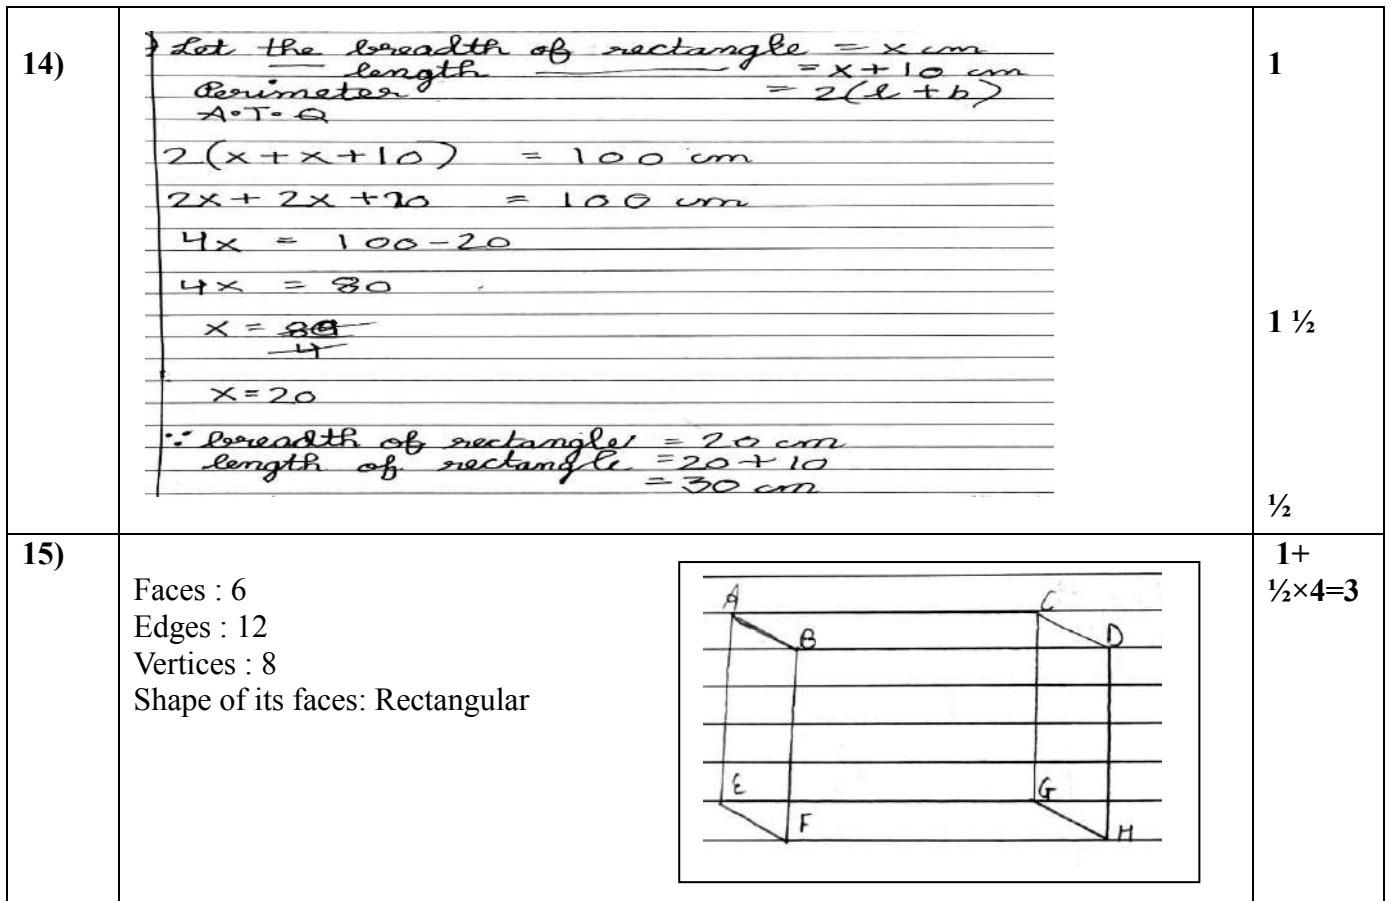 14)
Let the breadth of rectangle = x cm
length = x + 10 cm
Perimeter = 2(l + b)
A.T.Q
2(x + x + 10) = 100 cm
2x + 2x + 20 = 100 cm
4x = 100 - 20
4x = 80
x = 80
4
x = 20
∵ breadth of rectangle = 20 cm
length of rectangle = 20 + 10
= 30 cm
1
1 ½
½
15)
Faces : 6
Edges : 12
Vertices : 8
Shape of its faces: Rectangular
A C
B D
E G
F H
1+
½×4=3